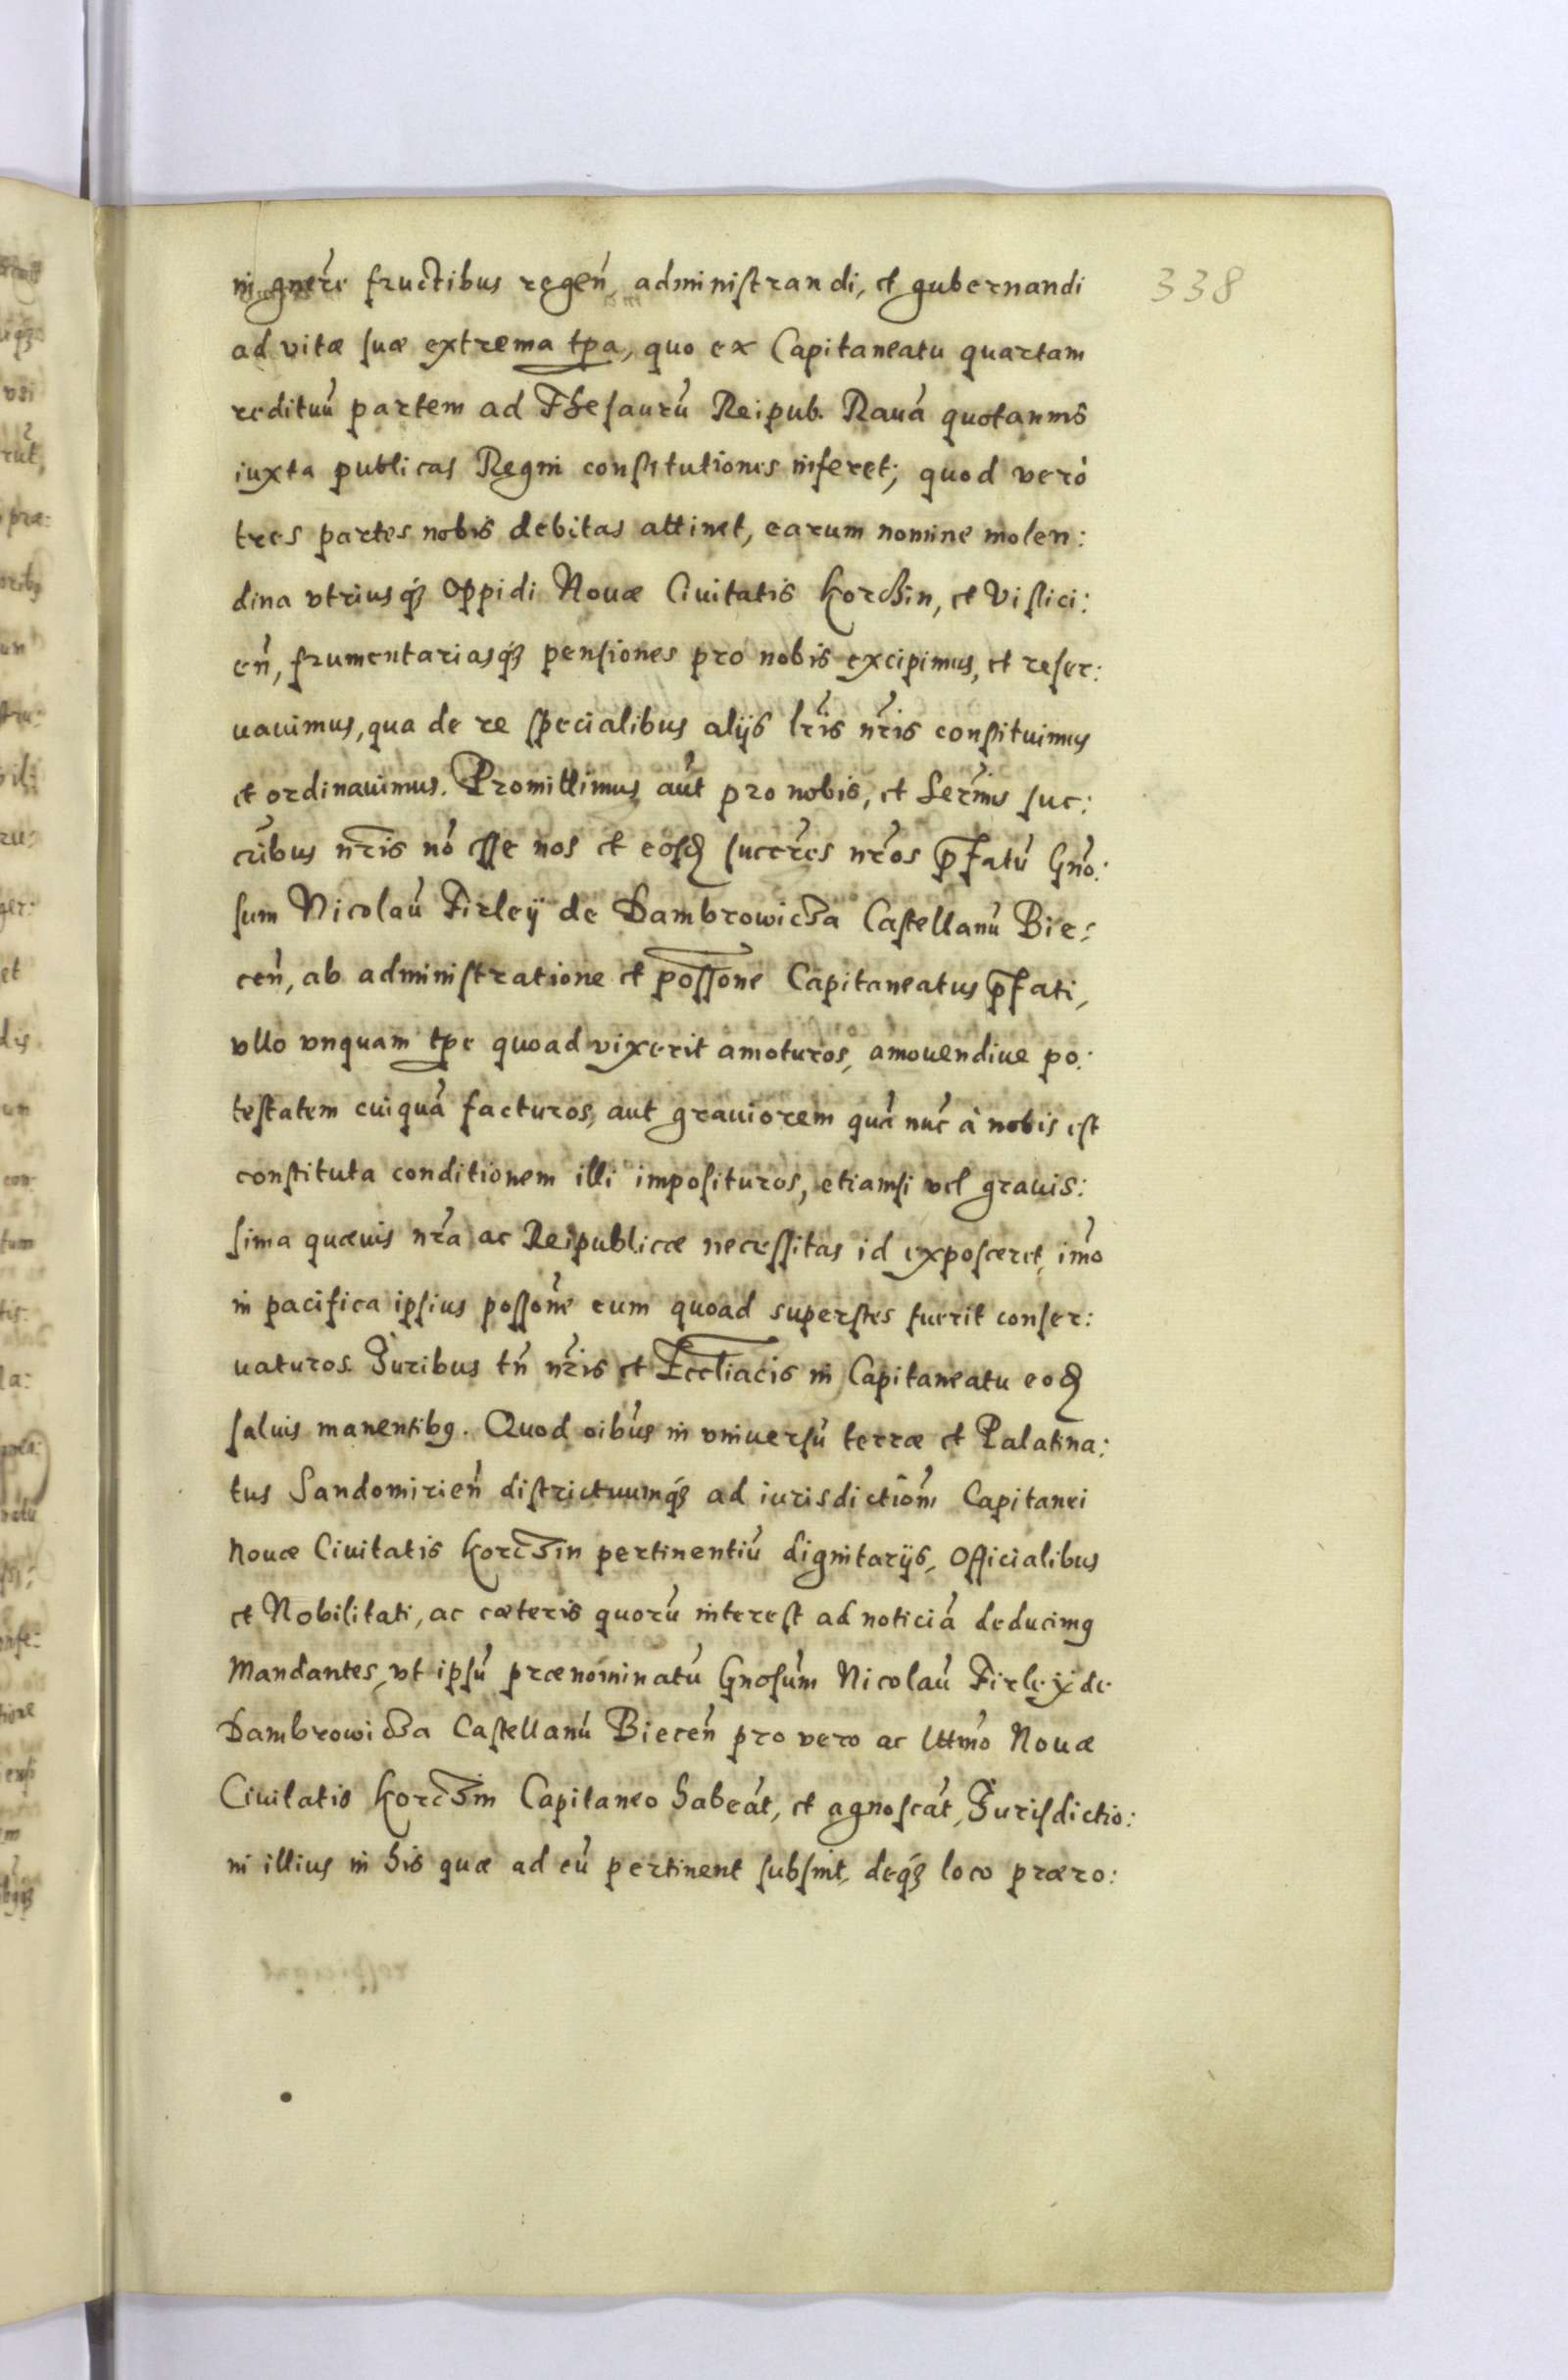 338
in gnere fructibus regeñ, administrandi, et gubernandi
ad vitæ suæ extrema tpa, quo ex Capitaneatu quartam
redituũ partem ad Thesaurũ Reipub. Rauã quotannis
iuxta publicas Regni constitutiones inferet; quod verò
tres partes nobis debitas attinet, earum nomine molen:
dina vtriusq́ꝫ Oppidi Nouæ Ciuitatis Korchin, et Vislici:
eñ, frumentariasq́ꝫ pensiones pro nobis excipimus, et reser:
uauimus, qua de re specialibus alijs lr̃is nr̃is constituimus
et ordinauimus. Promittimus aũt pro nobis, et Serm̃is suc:
cr̃ibus nr̃is nõ esse nos et eosđ succr̃es nr̃os p̃fatũ Gño:
sum Nicolaũ Firleÿ de Dambrowicza Castellanũ Bie:
ceñ, ab administratione et possone Capitaneatus p̃fati,
vllo vnquam tpe quoad vixerit amoturos, amouendiue po:
testatem cuiquã facturos, aut grauiorem quã nũc à nobis est
constituta conditionem illi imposituros, etiamsi vel grauis:
sima quæuis nr̃a ac Reipublicæ necessitas id exposceret, im̃o
in pacifica ipsius possom̃e eum quoad superstes fuerit conser:
uaturos. Juribus tñ nr̃is et Eccliacis in Capitaneatu eođ
saluis manentibꝰ. Quod oĩbus in vniuersũ terræ et Palatina:
tus Sandomirieñ districtuumq́ꝫ ad iurisdictiom̃ Capitanei
Nouæ Ciuitatis Korczin pertinentiũ dignitarijs, Officialibus
et Nobilitati, ac cæteris quorũ interest ad noticiã deducimꝰ
Mandantes, vt ipsũ prænominatũ Gnosũm Nicolaũ Firleÿ de
Dambrowicza Castellanũ Bieceñ pro vero ac lttm̃o Nouæ
Ciuitatis Korczin Capitaneo habeãt, et agnoscãt, Jurisdictio:
ni illius in his quæ ad eũ pertinent subsint, deq́ꝫ loco præro: